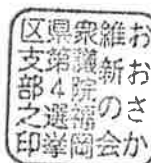 おおさか
維新の会
衆議院福岡
県第4選挙
区支部之印